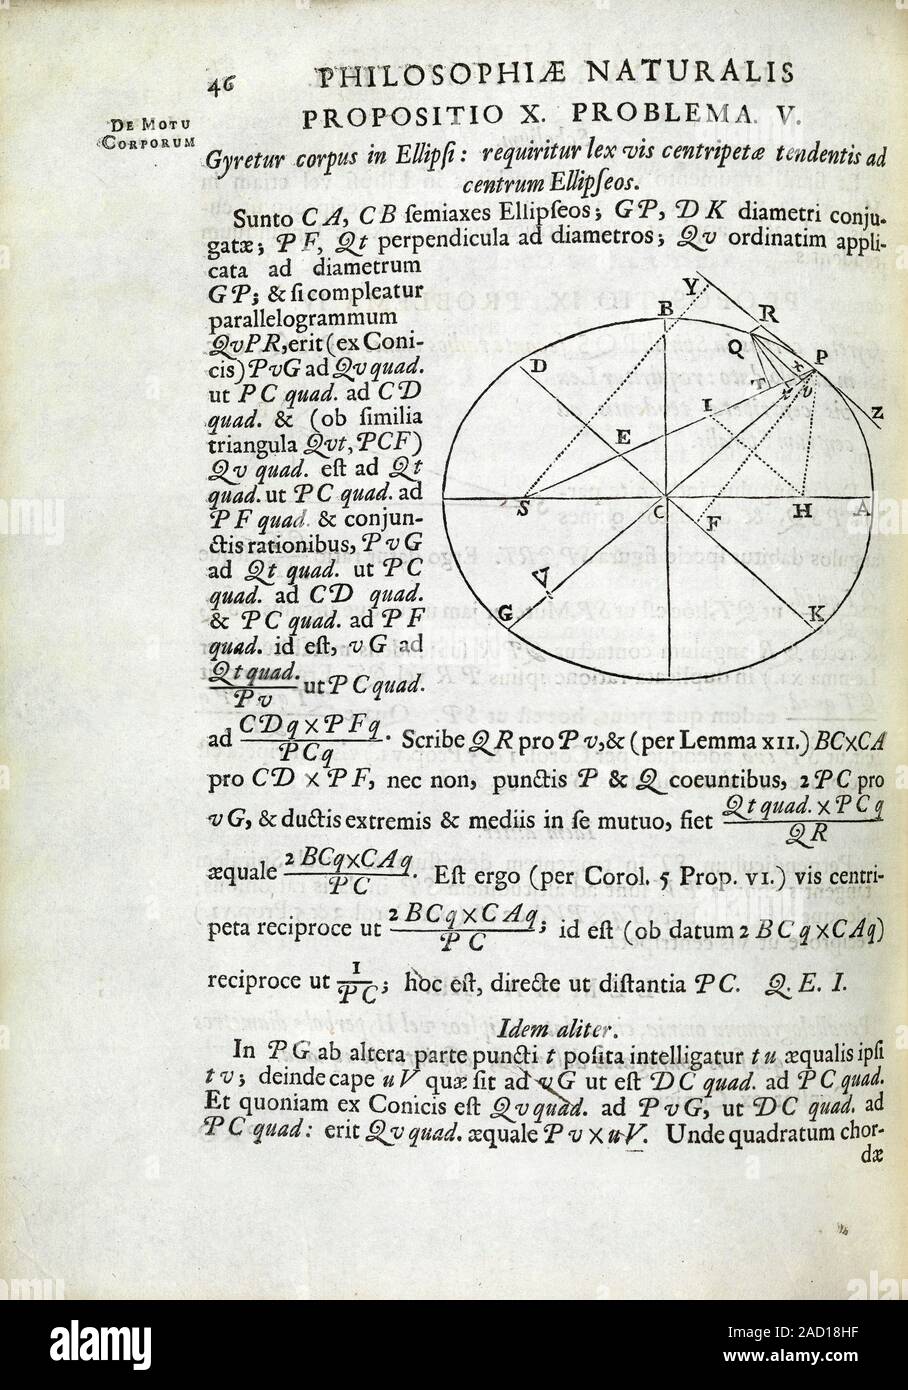 46 PHILOSOPHIÆ NATURALIS
De Motu
Corporum
PROPOSITIO X. PROBLEMA. V.
Gyretur corpus in Ellipſi: requiritur lex vis centripetæ tendentis ad
centrum Ellipſeos.
Sunto CA, CB ſemiaxes Ellipſeos; GP, DK diametri conju-
gatæ; PF, Qt perpendicula ad diametros; Qv ordinatim appli-
cata ad diametrum
GP; & ſi compleatur
parallelogrammum
QvPR, erit (ex Coni-
cis) PvG ad Qv quad.
ut PC quad. ad CD
quad. & (ob ſimilia
triangula Qvt, PCF)
Qv quad. eſt ad Qt
quad. ut PC quad. ad
PF quad. & conjun-
ctis rationibus, PvG
ad Qt quad. ut PC
quad. ad CD quad.
& PC quad. ad PF
quad. id eſt, vG ad
Qt quad./Pv ut PC quad.
ad CDq × PFq/PCq. Scribe QR pro Pv, & (per Lemma xii.) BC×CA
pro CD × PF, nec non, punctis P & Q coeuntibus, 2PC pro
vG, & ductis extremis & mediis in ſe mutuo, fiet Qt quad. × PCq/QR
æquale 2BCq×CAq/PC. Eſt ergo (per Corol. 5 Prop. vi.) vis centri-
peta reciproce ut 2BCq×CAq/PC; id eſt (ob datum 2BCq×CAq)
reciproce ut 1/PC; hoc eſt, directe ut diſtantia PC. Q. E. I.
Idem aliter.
In PG ab altera parte puncti t poſita intelligatur tu æqualis ipſi
tv; deinde cape uV quæ ſit ad vG ut eſt DC quad. ad PC quad.
Et quoniam ex Conicis eſt Qv quad. ad PvG, ut DC quad. ad
PC quad: erit Qv quad. æquale Pv × uV. Unde quadratum chor-
dæ
Y
B
R
Q
P
D
x
T
v
Z
I
E
S
C
F
H
A
V
G
K
alamy
Image ID: 2AD18HF
www.alamy.com